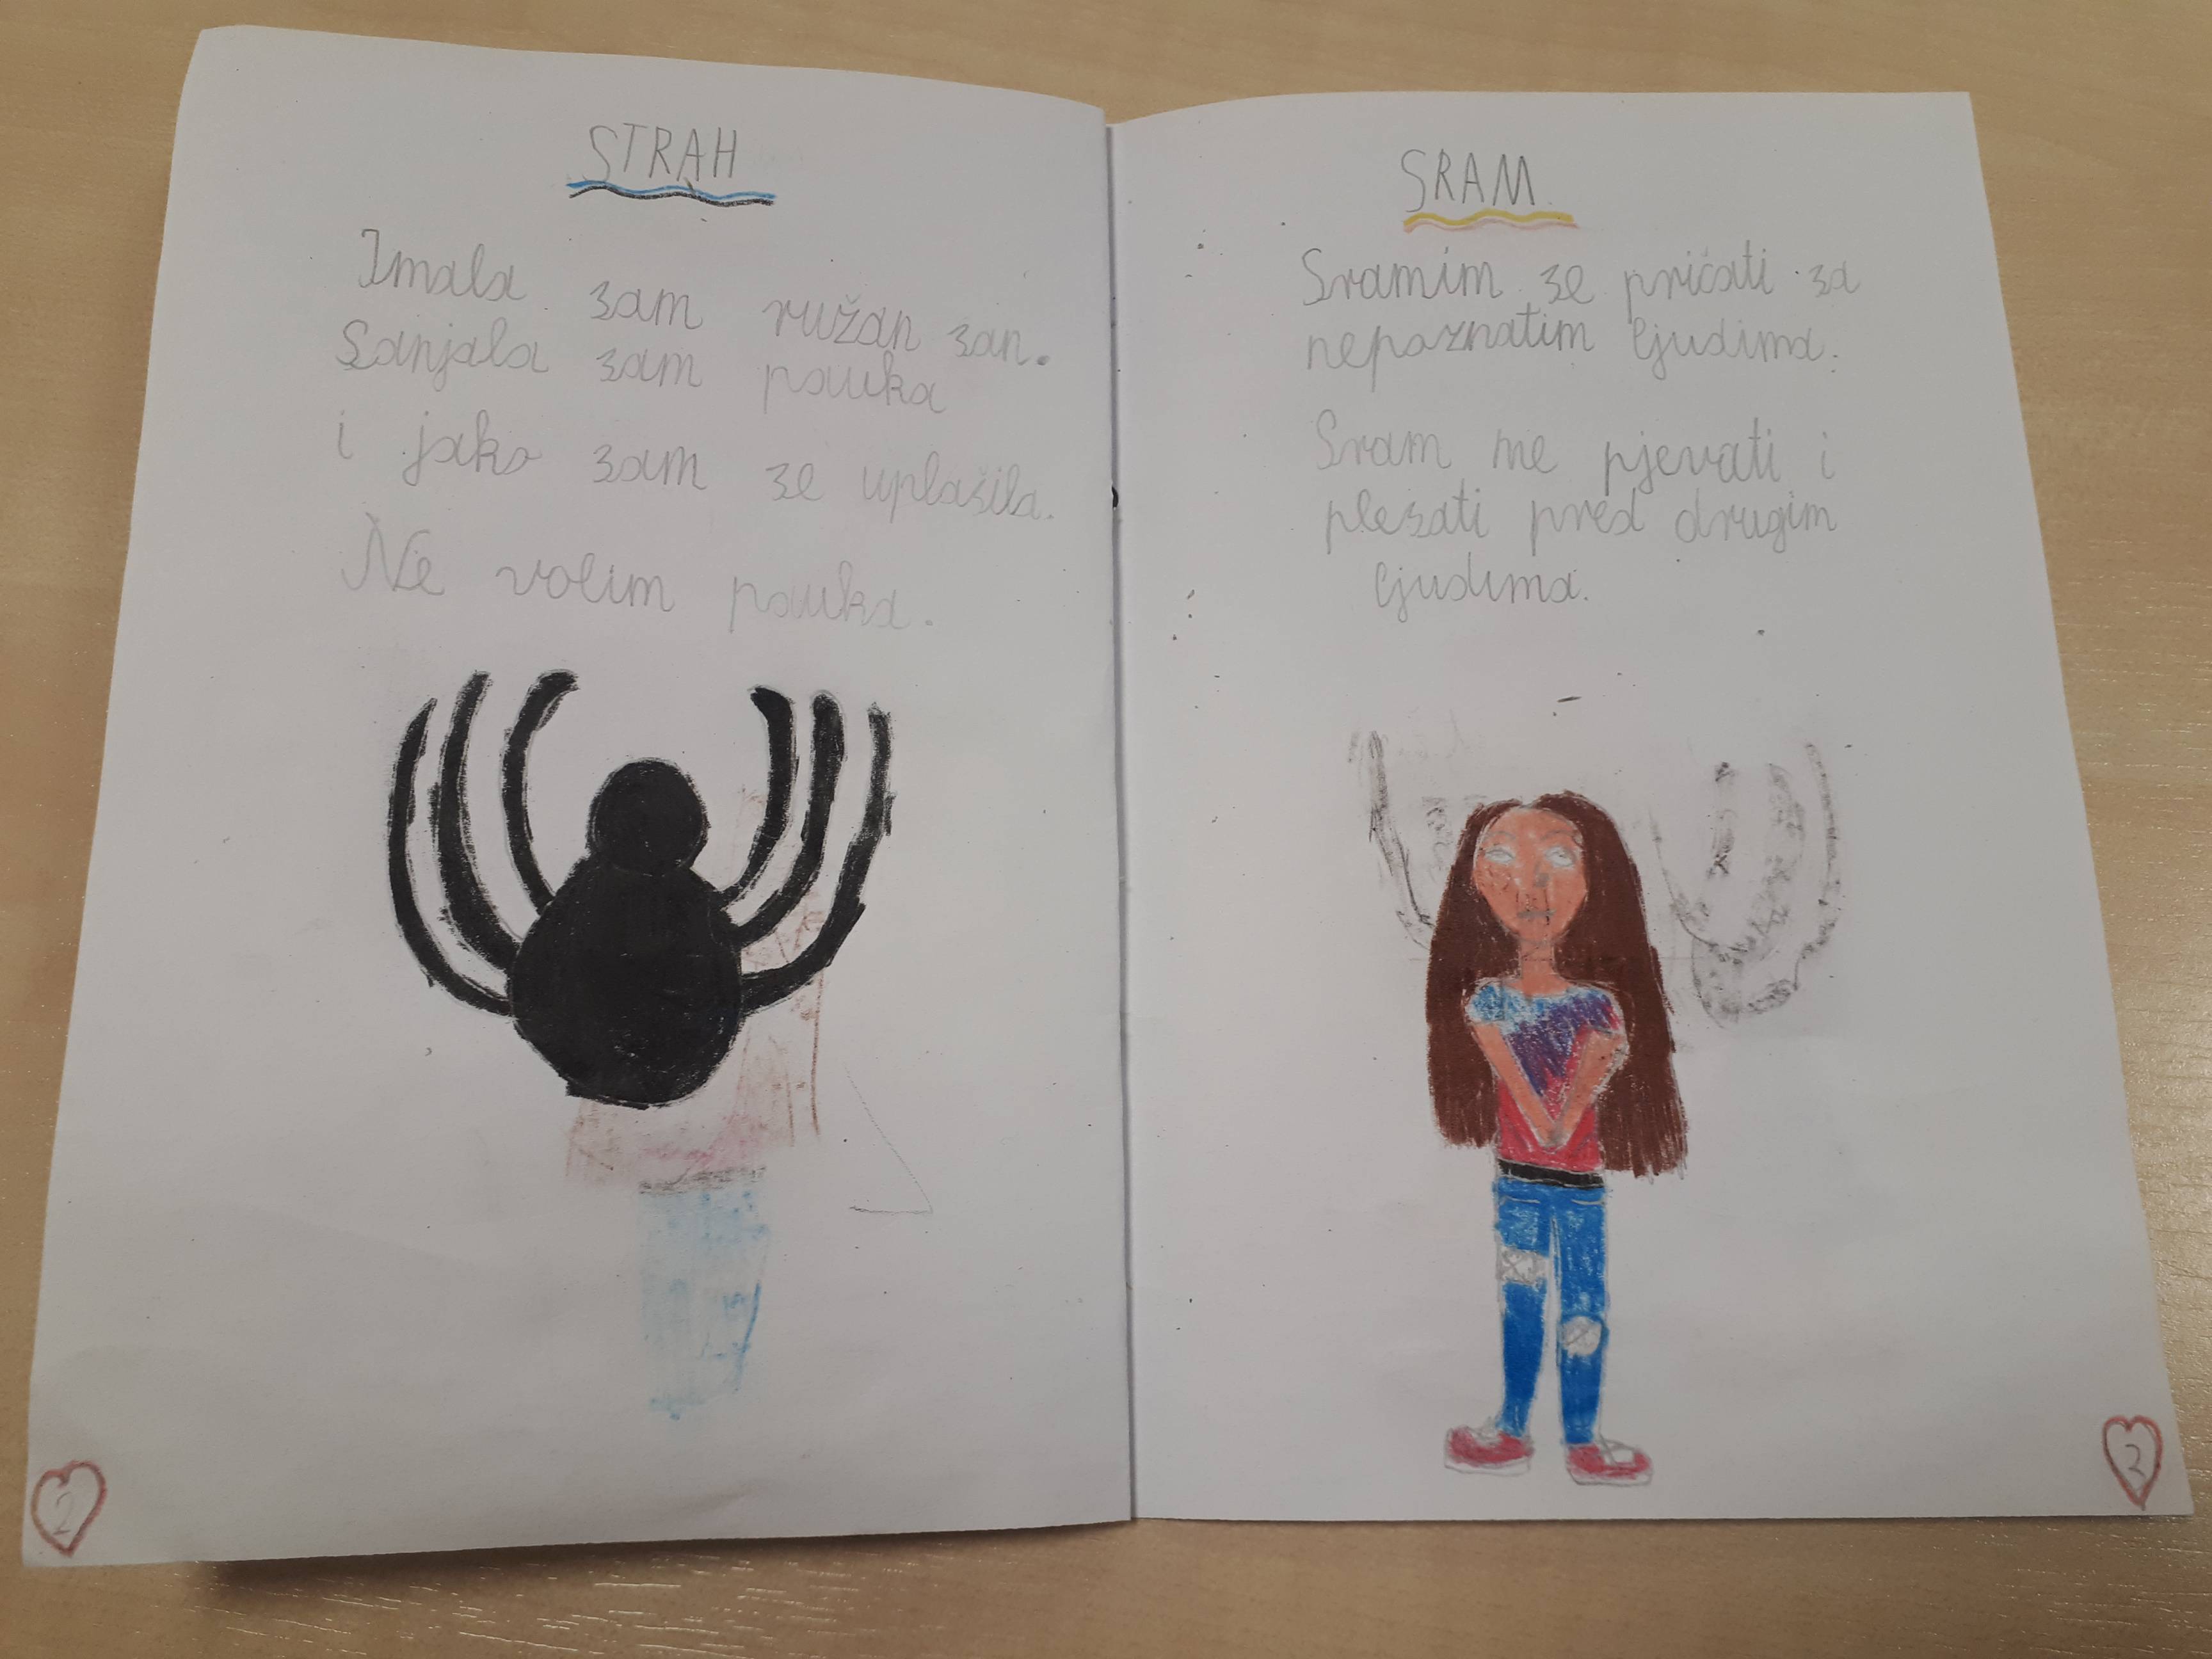 STRAH
Imala sam ružan san.
Sanjala sam pauka
i jako sam se uplašila.
Ne volim pauka.
2
SRAM
Sramim se pričati sa
nepoznatim ljudima.
Sram me pjevati i
plesati pred drugim
ljudima.
2